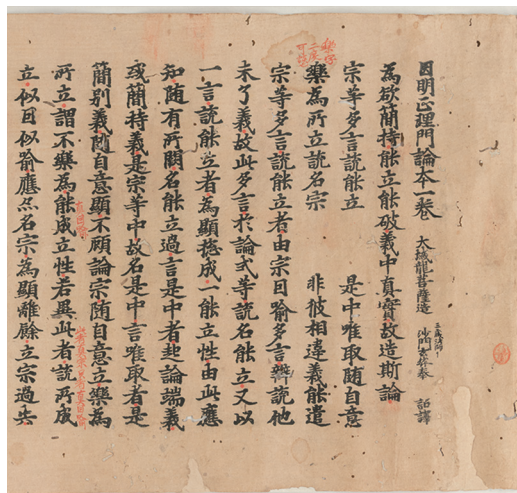 因明正理門論本一卷 大域龍菩薩造
三藏法師
沙門玄奘奉 詔譯
為欲簡持能立能破義中真實故造斯論
宗等多言說能立 是中唯取随自意
樂為所立說名宗 非彼相違義能遣
宗等多言說能立者由宗因喻多言辯說他
未了義故此多言於論式等說名能立又以
一言說能立者為顯揔成一能立性由此應
知随有所闕名能立過言是中者起論端義
或簡持義是宗等中故名是中言唯取者是
簡別義随自意顯不顧論宗随自意立樂為
所立謂不樂為能成立性若異此者說所成
立似因似喻應亦名宗為顯離餘立宗過失